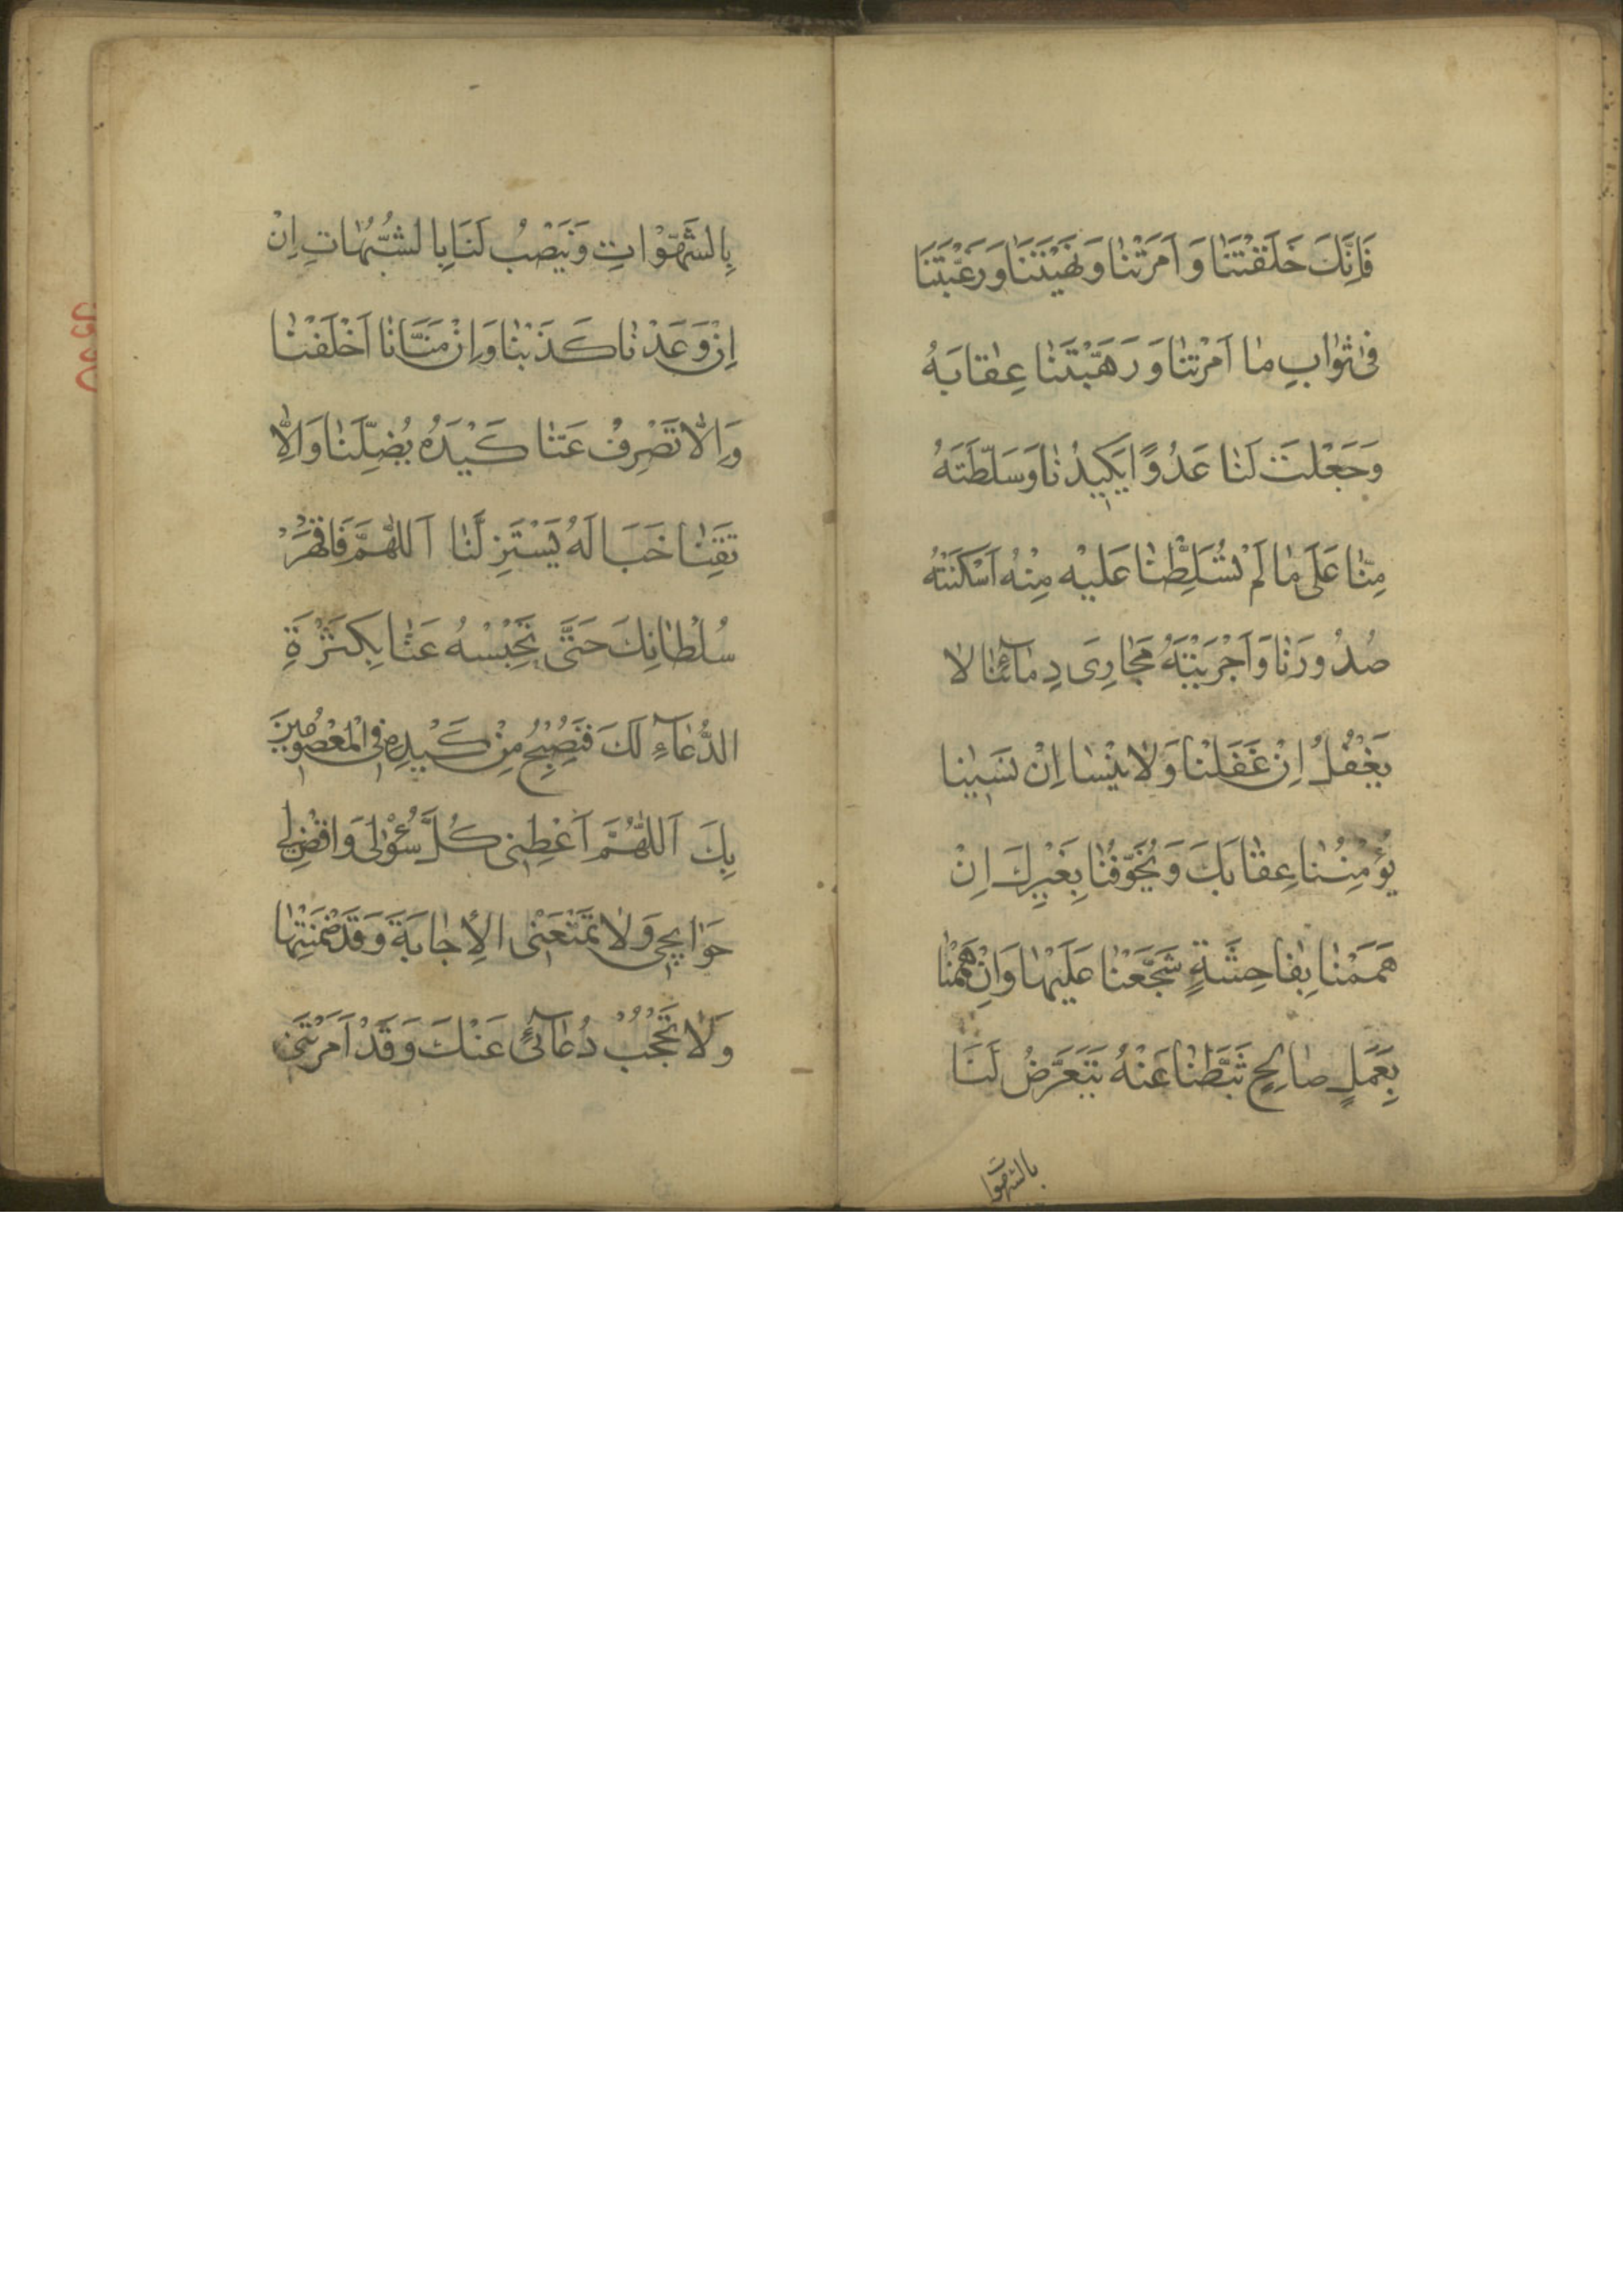 فَاِنَّكَ خَلَقْتَنَا وَ اَمَرْتَنَا وَ نَهَيْتَنَا وَ رَغَّبْتَنَا
فى ثَوابِ ما اَمَرْتَنَا وَ رَهَّبْتَنَا عِقابَهُ
وَ جَعَلْتَ لَنَا عَدُوًّا يَكيدُنَا وَ سَلَّطْتَهُ
مِنَّا عَلَى مَا لَمْ تُسَلِّطْنَا عَلَيْهِ مِنْهُ اَسْكَنْتَهُ
صُدُورَنَا وَ اَجْرَيْتَهُ مَجَارِىَ دِمَآئِنَا لا
يَغْفُلُ اِنْ غَفَلْنَا وَ لا يَنْسَا اِنْ نَسَيْنَا
يُؤْمِنُنَا عِقَابَكَ وَ يُخَوِّفُنَا بِغَيْرِكَ اِنْ
هَمَمْنَا بِفَاحِشَةٍ شَجَّعَنْا عَلَيْهَا وَاِنْ هَمَمْنَا
بِعَمَلٍ صالِحٍ ثَبَّطَنْا عَنْهُ يَتَعَرَّضُ لَنَا
بالشهوا
بِالشَّهَوَاتِ وَ يَنْصِبُ لَنَا بِا لشُّبُهَاتِ اِنْ
اِنْ وَعَدْنَا كَذَبَنَا وَ اِنْ مَنَّانَا اَخْلَفَنَا
وَ اِلاّ تَصْرِفْ عَنَّا كَيْدَهُ يُضِلَّنَا وَ اِلاّ
تَقِنَا خَبَالَهُ يَسْتَزِ لَّنَا اَللّهُمَّ فَاقْهَرْ
سُلْطَانِكَ حَتَّى تَحْبِسْهُ عَنَّا بِكَثْرَةِ
الدُّعَآءِ لَكَ فَنُصْبِحَ مِنْ كَيْدِهِ فِى الْمَعْصُومينَ
بِكَ اَللّهُمَّ اَعْطِنى كُلَّ سُؤْلى وَ اقْضِ لى
حَوَايِجى وَ لا تَمْنَعْنى الاِجَابَةَ وَ قَدْ ضَمَنْتَهَا
وَ لا تَحْجُبْ دُعَآئى عَنْكَ وَ قَدْ اَمَرْتَنى